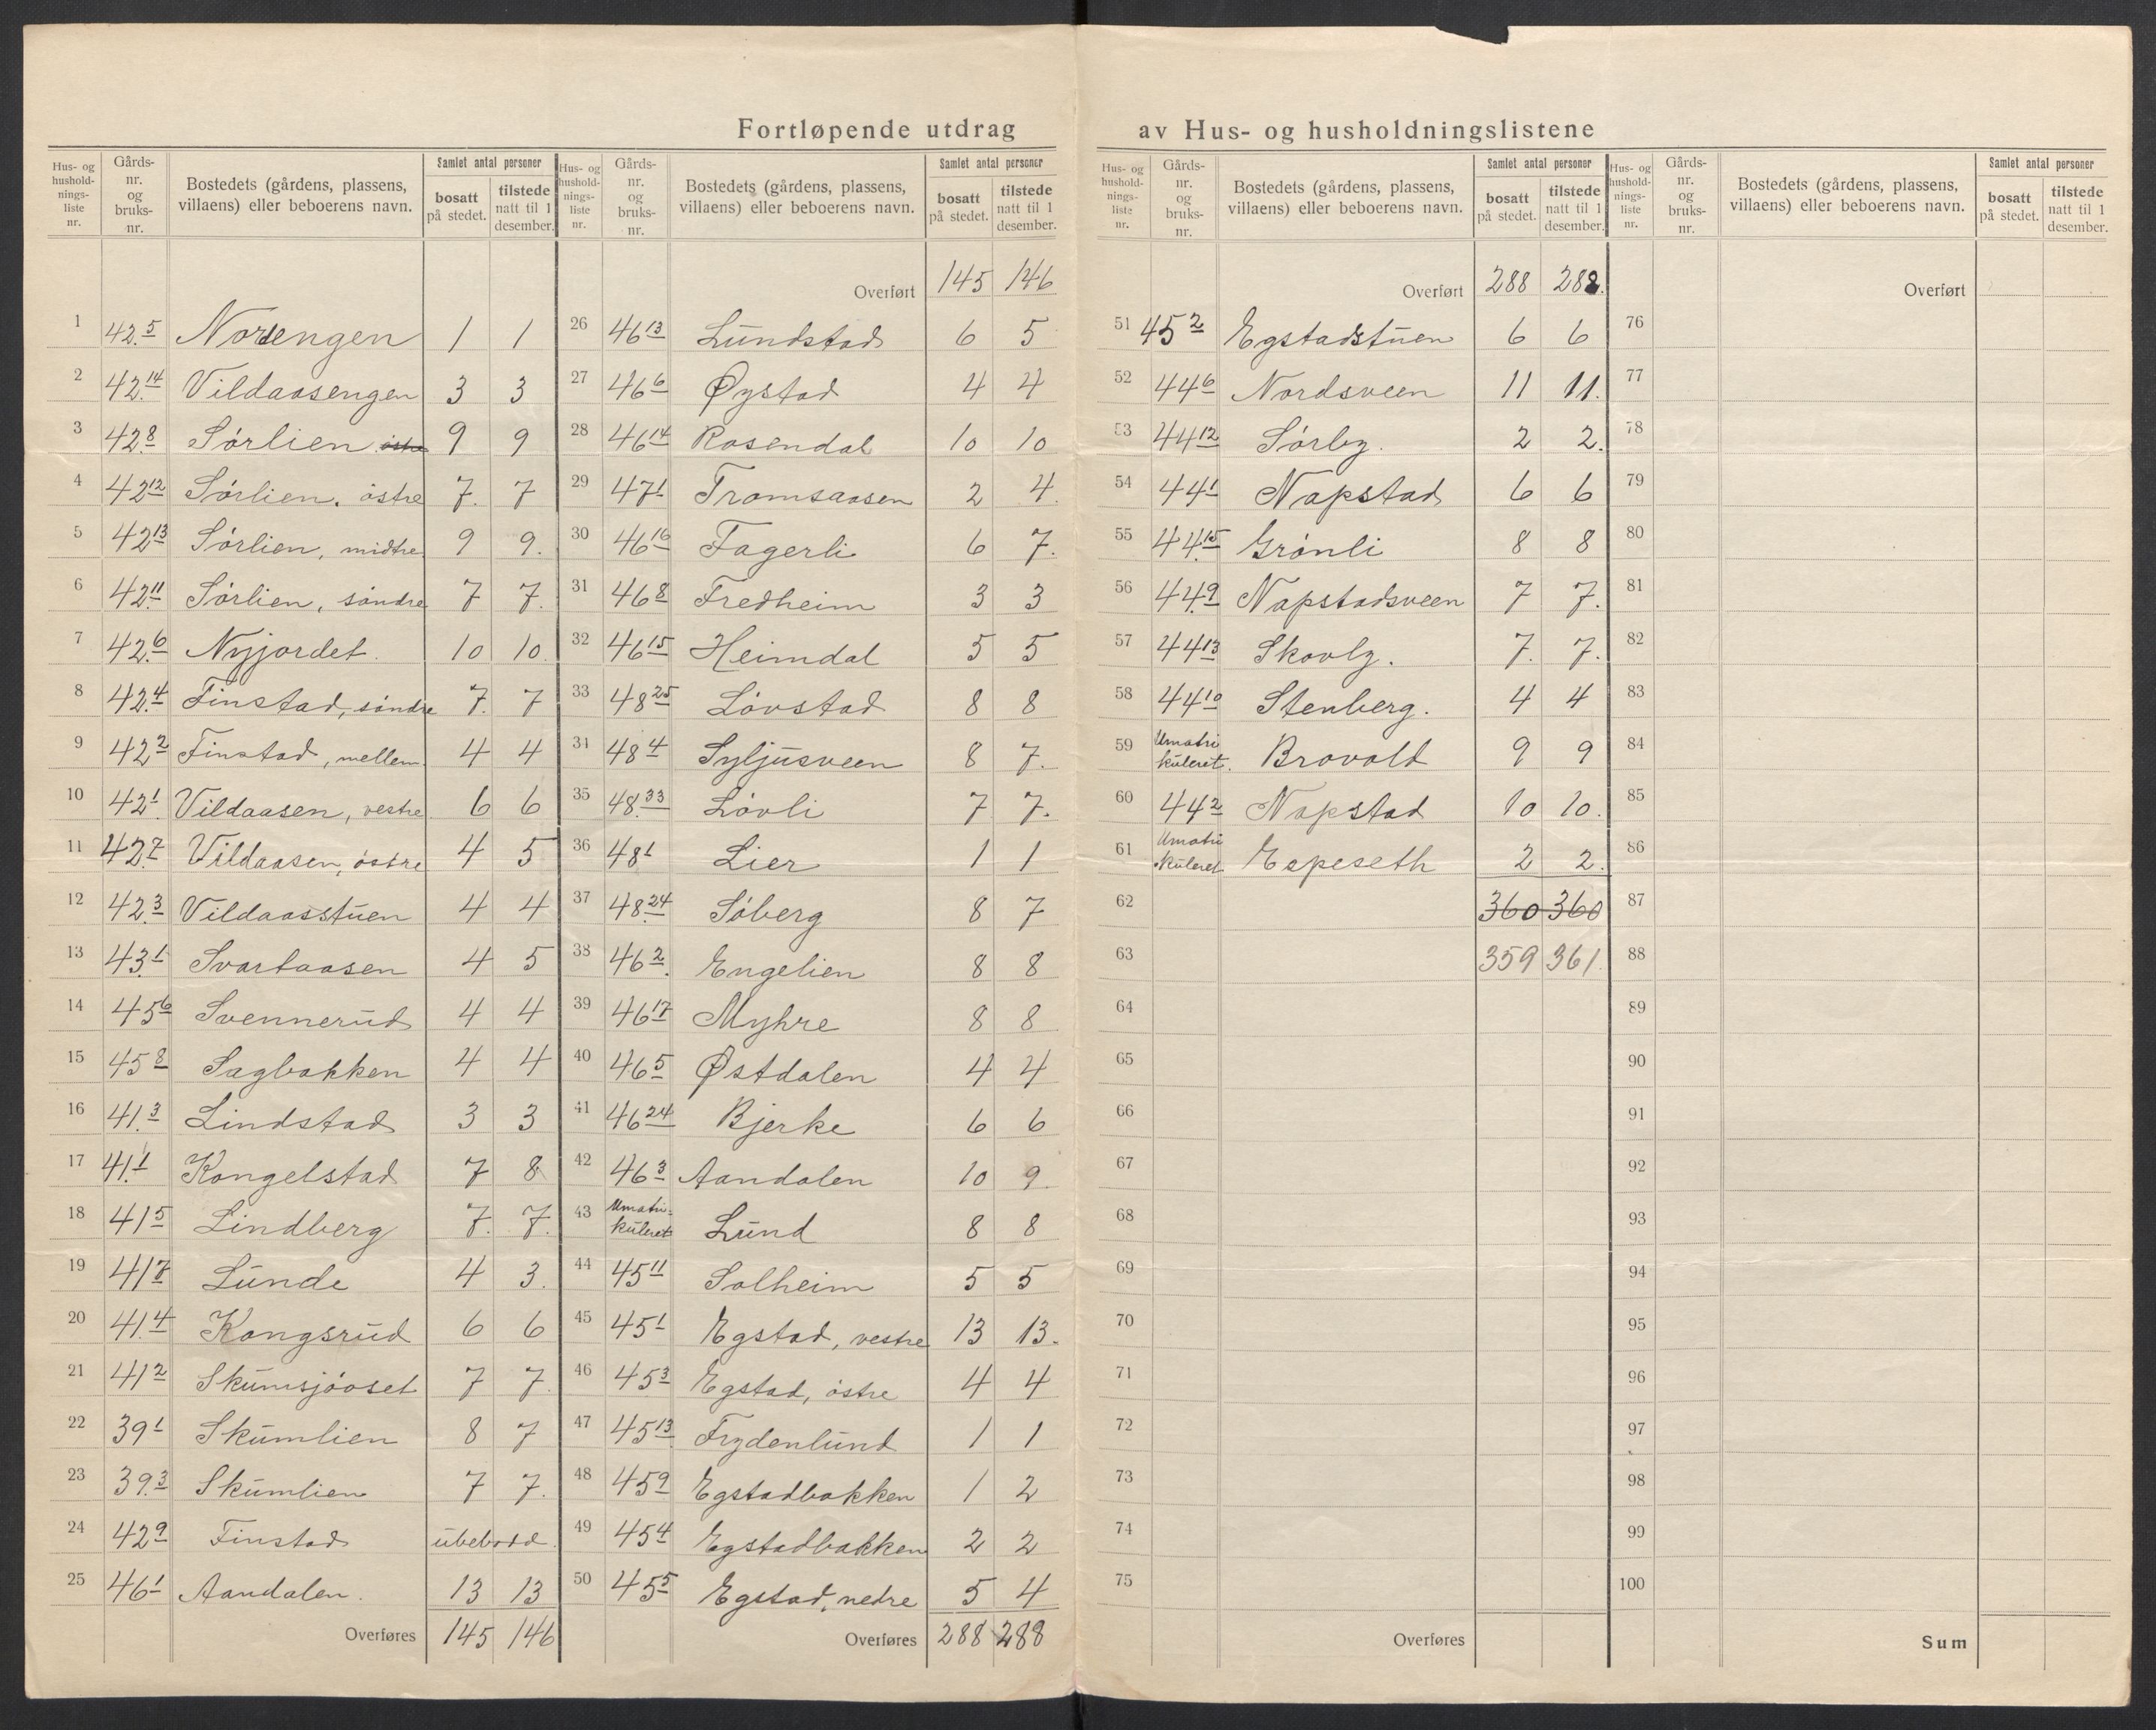 Fortløpende utdrag av Hus- og husholdningslistene
Hus- og hushold- nings- liste nr. | Gårds- nr. og bruks- nr. | Bostedets (gårdens, plassens, villaens) eller beboerens navn. | Samlet antal personer | bosatt på stedet. | tilstede natt til 1 desember.
1 42.5 Nordengen 1 1
2 42.14 Vildaasengen 3 3
3 42.8 Sörlien östre 9 9
4 42.12 Sörlien, östre 7. 7
5 42.13 Sörlien, midtre 9 9.
6 42.11 Sörlien, söndre 7 7.
7 42.6 Nyjordet. 10 10.
8 42.4 Finstad, söndre 7. 7
9 42.2 Finstad, mellem 4 4
10 42.1 Vildaasen, vestre 6 6
11 42.7 Vildaasen, östre 4 5
12 42.3 Vildaasstuen 4 4
13 43.1 Svartaasen 4 5
14 45.6 Svennerud 4 4
15 45.8 Sagbakken 4 4
16 41.3 Lindstad 3 3
17 41.1 Kongelstad 7 8
18 41.5 Lindberg 7. 7.
19 41.7 Lunde 4 3.
20 41.4 Kongsrud 6 6
21 41.2 Skumsjöoset 7 7
22 39.1 Skumlien 8 7
23 39.3 Skumlien 7 7.
24 42.9 Finstad ubebodd.
25 46.1 Aandalen. 13 13
Overføres 145 146
Hus- og hushold- nings- liste nr. | Gårds- nr. og bruks- nr. | Bostedets (gårdens, plassens, villaens) eller beboerens navn. | Samlet antal personer | bosatt på stedet. | tilstede natt til 1 desember.
Overført 145 146
26 46.13 Lundstad 6 5
27 46.6 Øystad 4 4
28 46.14 Rosendal 10 10
29 47.1 Tromsaasen 2 4.
30 46.16 Fagerli 6 7.
31 46.8 Fredheim 3 3
32 46.15 Heimdal 5 5
33 48.25 Lövstad 8 8
34 48.4 Syljusveen 8 7.
35 48.33 Lövli 7 7.
36 48.1 Lier 1 1
37 48.24 Söberg 8 7
38 46.2 Engelien 8 8
39 46.17 Myhre 8 8
40 46.5 Østdalen 4 4
41 46.24 Bjerke 6 6
42 46.3 Aandalen 10 9.
43 Umatri- kuleret Lund 8 8
44 45.11 Solheim 5 5
45 45.1 Egstad, vestre 13 13.
46 45.3 Egstad, östre 4 4
47 45.13 Frydenlund 1 1
48 45.9 Egstadbakken 1 2
49 45.4 Egstadbakken 2 2
50 45.5 Egstad, nedre 5 4
Overføres 288 288
Hus- og hushold- nings- liste nr. | Gårds- nr. og bruks- nr. | Bostedets (gårdens, plassens, villaens) eller beboerens navn. | Samlet antal personer | bosatt på stedet. | tilstede natt til 1 desember.
Overført 288 288.
51 45.2 Egstadstuen 6 6
52 44.6 Nordsveen 11 11.
53 44.12 Sörby. 2 2.
54 44.1 Napstad 6 6
55 44.15 Grönli 8 8
56 44.9 Napstadsveen 7 7.
57 44.13 Skovly. 7. 7.
58 44.10 Stenberg. 4 4
59 Umatri kuleret. Brovold 9 9
60 44.2 Napstad 10 10.
61 Umatri kuleret Espeseth 2 2.
62 360 360
63 359 361.
64
65
66
67
68
69
70
71
72
73
74
75
Overføres
Hus- og hushold- nings- liste nr. | Gårds- nr. og bruks- nr. | Bostedets (gårdens, plassens, villaens) eller beboerens navn. | Samlet antal personer | bosatt på stedet. | tilstede natt til 1 desember.
Overført
76
77
78
79
80
81
82
83
84
85
86
87
88
89
90
91
92
93
94
95
96
97
98
99
100
Sum